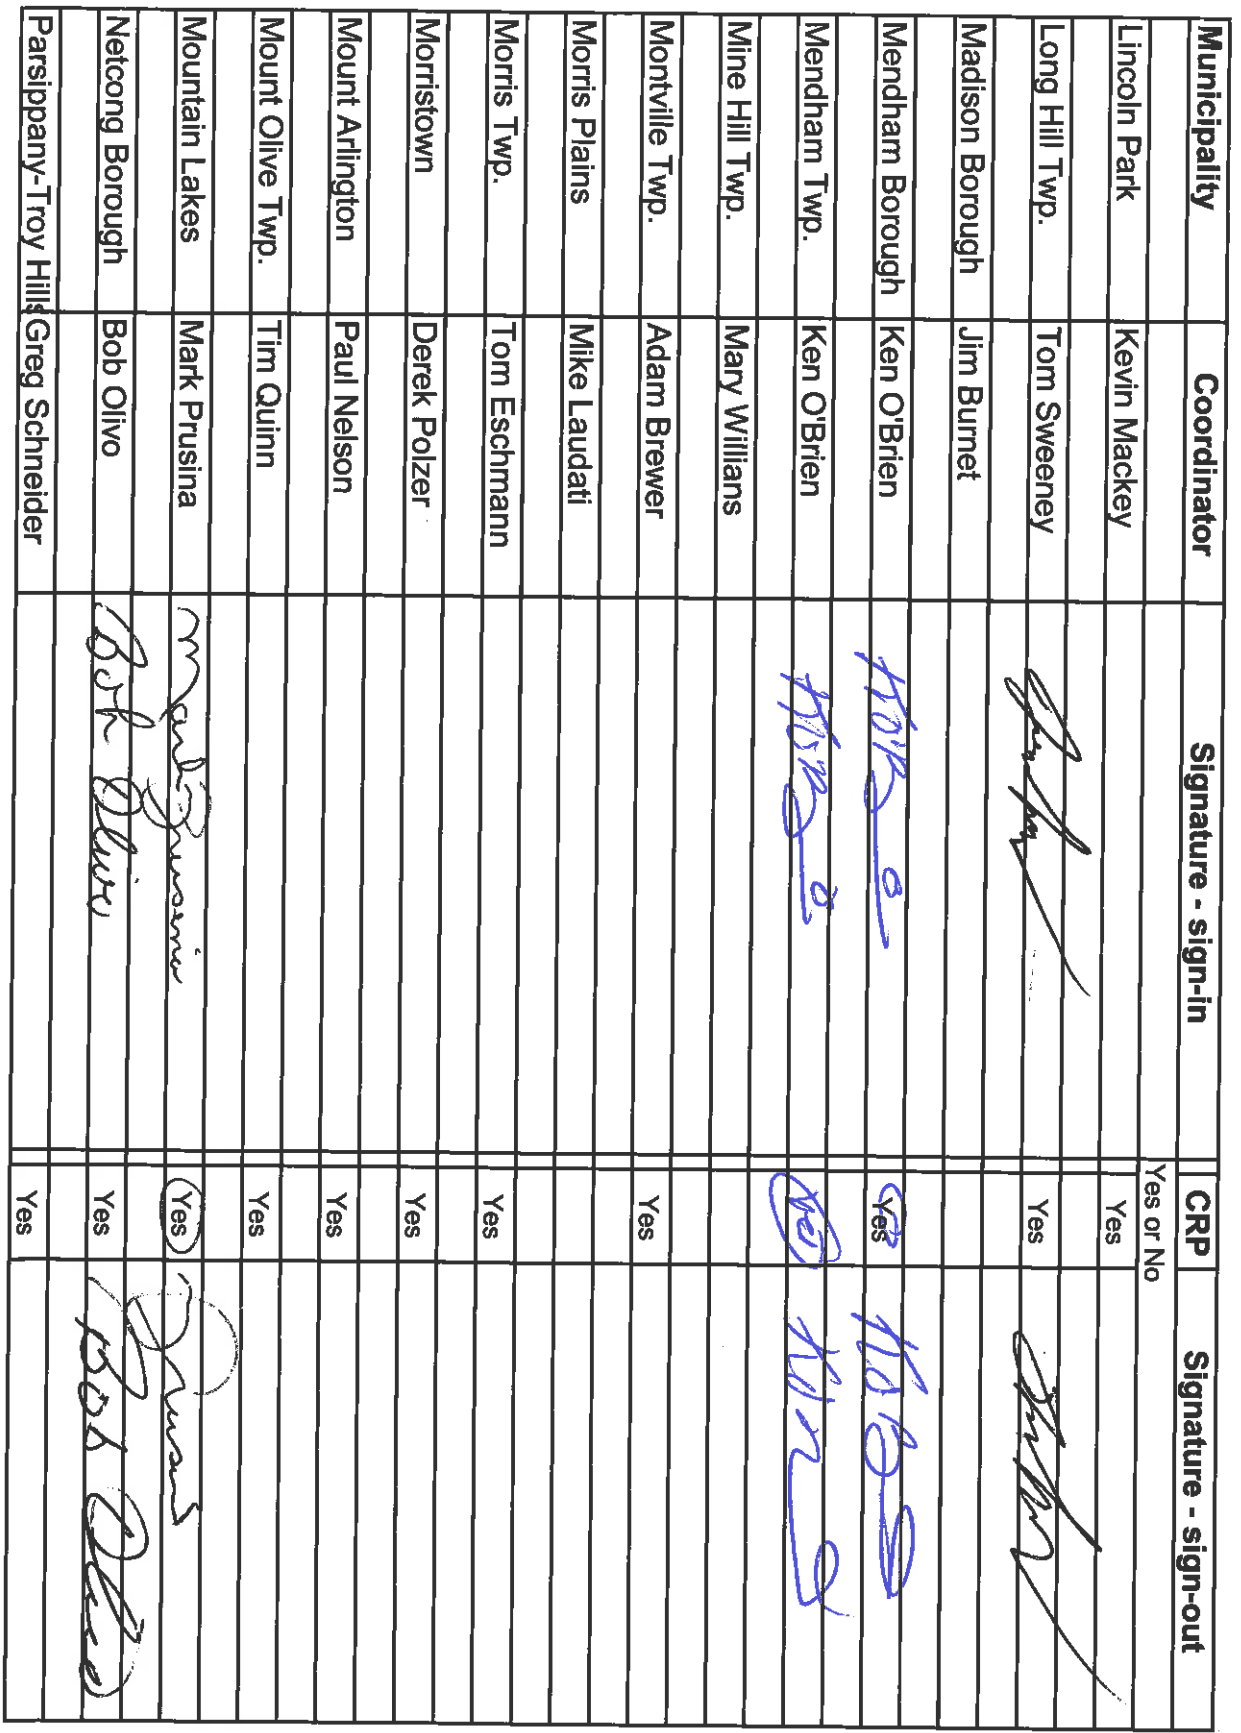 Municipality Coordinator Signature - sign-in CRP Signature - sign-out
Yes or No
Lincoln Park Kevin Mackey Yes
Long Hill Twp. Tom Sweeney Yes
Madison Borough Jim Burnet
Mendham Borough Ken O'Brien Yes
Mendham Twp. Ken O'Brien Yes
Mine Hill Twp. Mary Willians
Montville Twp. Adam Brewer Yes
Morris Plains Mike Laudati
Morris Twp. Tom Eschmann Yes
Morristown Derek Polzer Yes
Mount Arlington Paul Nelson Yes
Mount Olive Twp. Tim Quinn Yes
Mountain Lakes Mark Prusina Mark Prusina Yes
Netcong Borough Bob Olivo Bob Olivo Yes Bob Olivo
Parsippany-Troy Hills Greg Schneider Yes